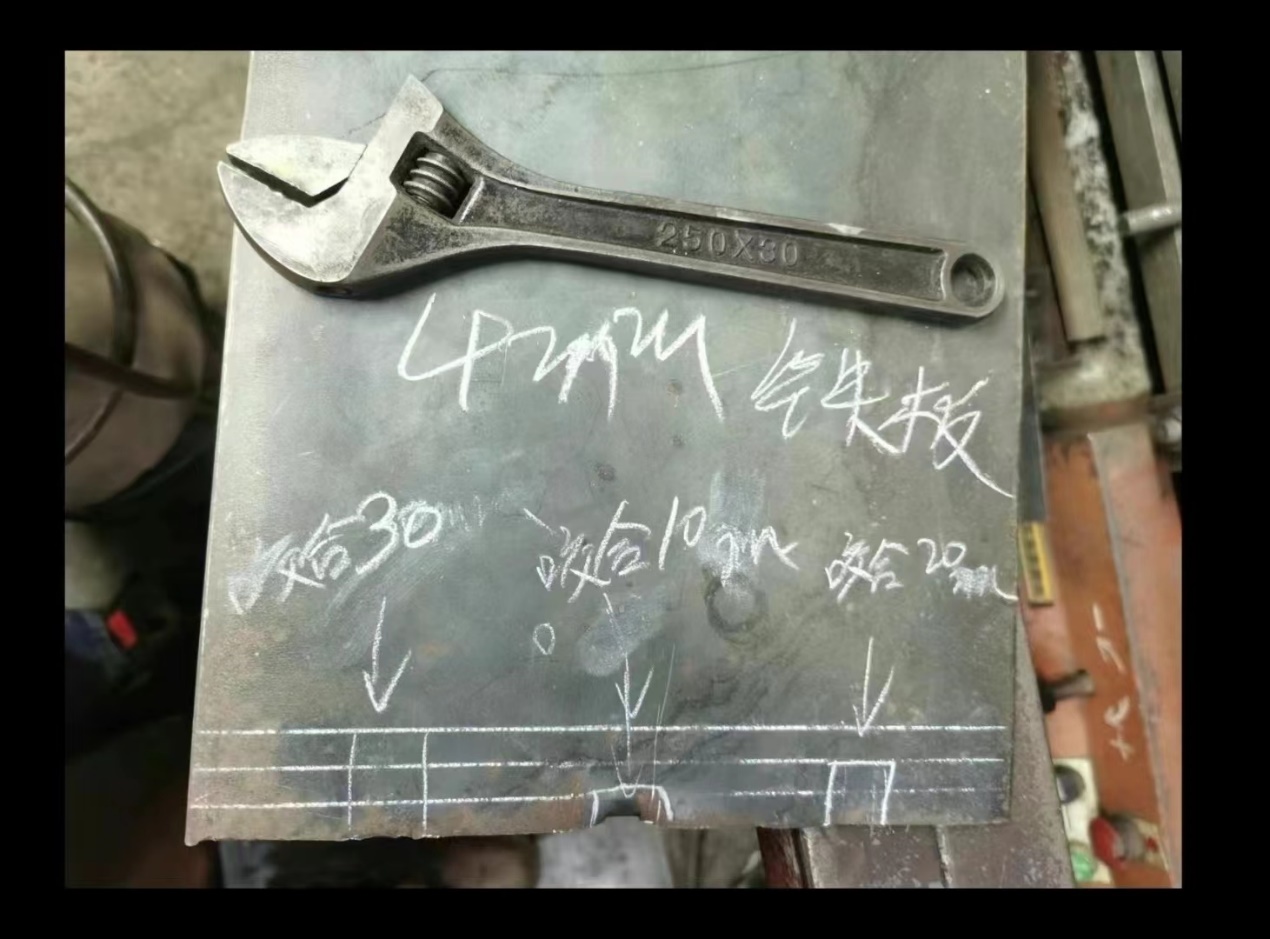 250X30
4mm 铁板
咬合30
咬合10mm
咬合20mm